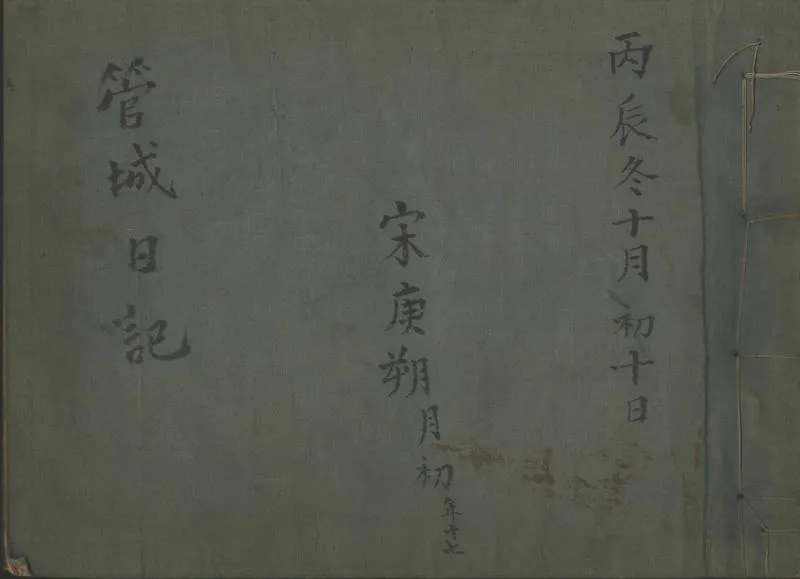 丙辰冬十月初十日
宋庚朔月初年十七
管城日記